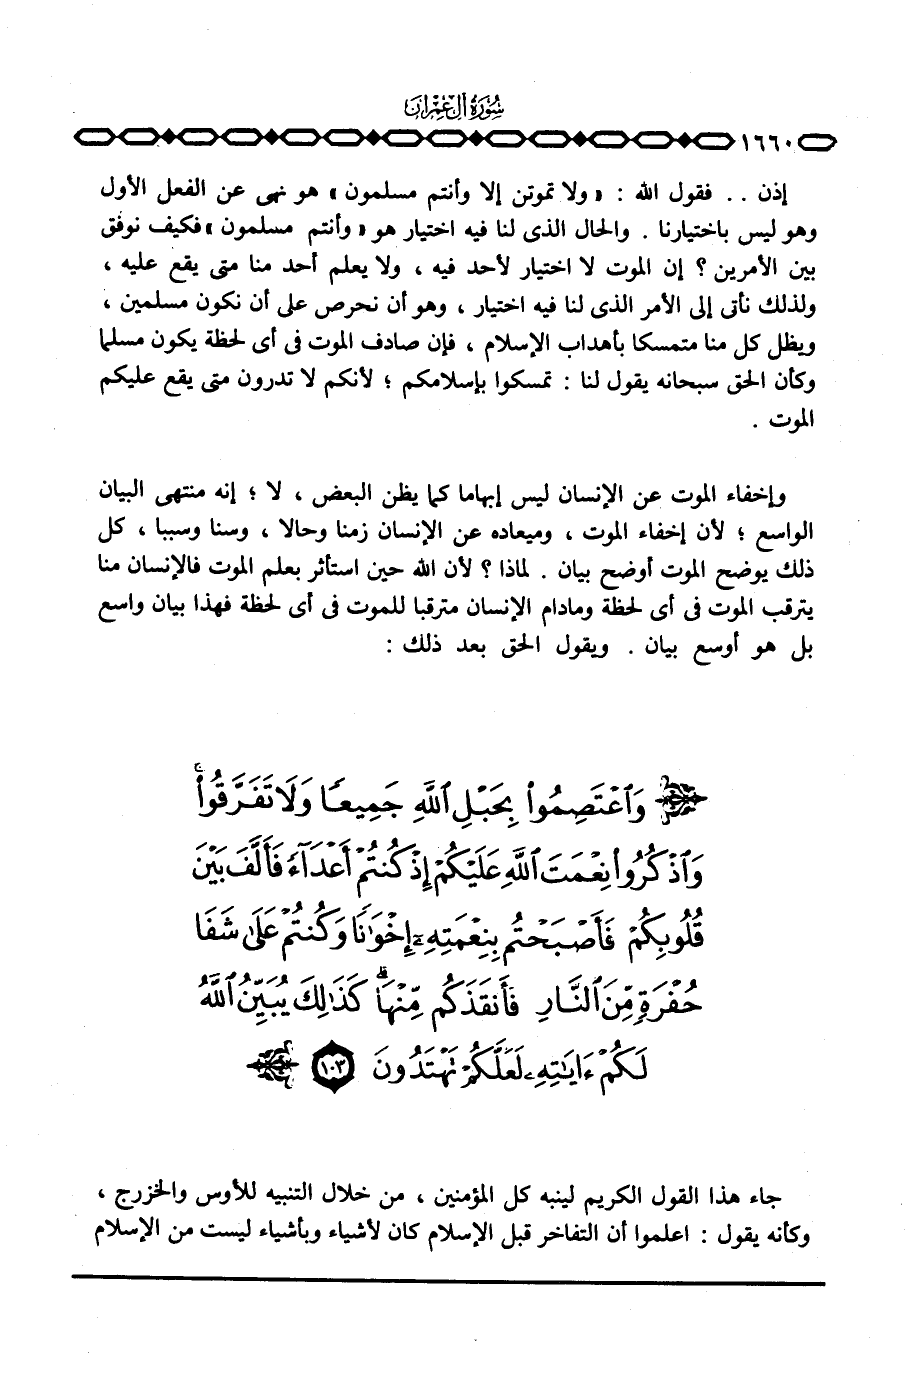 سُورَةُ آلِ عِمْرَان
١٦٦٠
إذن .. فقول الله : « ولا تموتن إلا وأنتم مسلمون » هو نهى عن الفعل الأول
وهو ليس باختيارنا . والحال الذى لنا فيه اختيار هو « وأنتم مسلمون » فكيف نوفق
بين الأمرين ؟ إن الموت لا اختيار لأحد فيه ، ولا يعلم أحد منا متى يقع عليه ،
ولذلك نأتى إلى الأمر الذى لنا فيه اختيار ، وهو أن نحرص على أن نكون مسلمين ،
ويظل كل منا متمسكا بأهداب الإسلام ، فإن صادف الموت فى أى لحظة يكون مسلما
وكأن الحق سبحانه يقول لنا : تمسكوا بإسلامكم ؛ لأنكم لا تدرون متى يقع عليكم
الموت .
وإخفاء الموت عن الإنسان ليس إبهاما كما يظن البعض ، لا ؛ إنه منتهى البيان
الواسع ؛ لأن إخفاء الموت ، وميعاده عن الإنسان زمنا وحالا ، وسنا وسببا ، كل
ذلك يوضح الموت أوضح بيان . لماذا ؟ لأن الله حين استأثر بعلم الموت فالإنسان منا
يترقب الموت فى أى لحظة ومادام الإنسان مترقبا للموت فى أى لحظة فهذا بيان واسع
بل هو أوسع بيان . ويقول الحق بعد ذلك :
وَٱعۡتَصِمُواْ بِحَبۡلِ ٱللَّهِ جَمِيعٗا وَلَا تَفَرَّقُواْۚ
وَٱذۡكُرُواْ نِعۡمَتَ ٱللَّهِ عَلَيۡكُمۡ إِذۡ كُنتُمۡ أَعۡدَآءٗ فَأَلَّفَ بَيۡنَ
قُلُوبِكُمۡ فَأَصۡبَحۡتُم بِنِعۡمَتِهِۦٓ إِخۡوَٰنٗا وَكُنتُمۡ عَلَىٰ شَفَا
حُفۡرَةٖ مِّنَ ٱلنَّارِ فَأَنقَذَكُم مِّنۡهَاۗ كَذَٰلِكَ يُبَيِّنُ ٱللَّهُ
لَكُمۡ ءَايَٰتِهِۦ لَعَلَّكُمۡ تَهۡتَدُونَ ١٠٣
جاء هذا القول الكريم لينبه كل المؤمنين ، من خلال التنبيه للأوس والخزرج ،
وكأنه يقول : اعلموا أن التفاخر قبل الإسلام كان لأشياء وبأشياء ليست من الإسلام